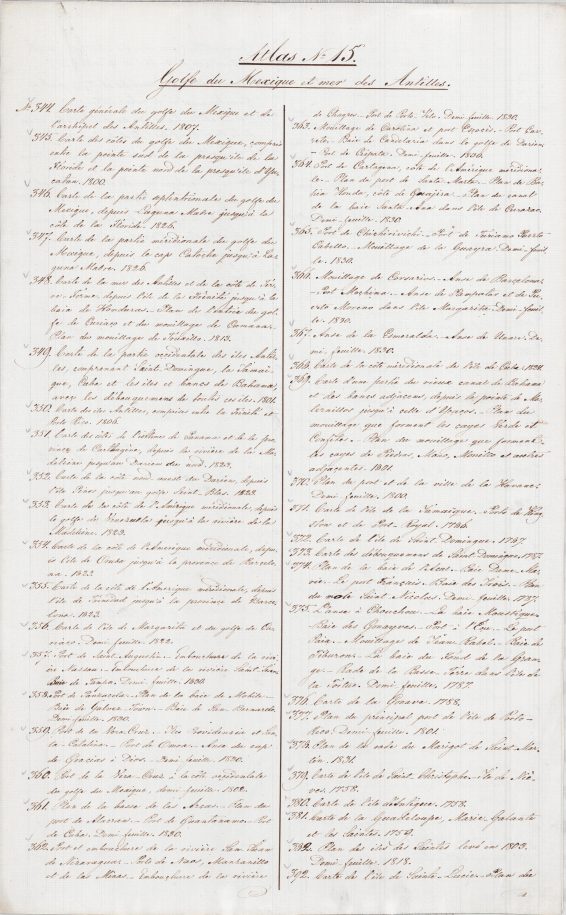 Atlas Nº 15.
Golfe du Mexique et mer des Antilles.
Nº 344. Carte générale du golfe du Mexique et de
l'archipel des Antilles. 1807.
345. Carte des côtes du golfe du Mexique, compris
entre la pointe sud de la presqu'ile de la
Floride et la pointe nord de la presqu'ile d'Yu-
catan. 1800.
346. Carte de la partie septentrionale du golfe du
Mexique, depuis Laguna Madre jusqu'à la
côte de la Floride. 1826.
347. Carte de la partie méridionale du golfe du
Mexique, depuis le cap Catoche jusqu'à La-
guna Madre. 1826.
348. Carte de la mer des Antilles et de la côte de Ter-
re-Ferme, depuis l'ile de la Trinité jusqu'à la
baie de Honduras. Plan de l'entrée du gol-
fe de Cariaco et du mouillage de Cumana.
Plan du mouillage de 1815.
349. Carte de la partie occidentale des iles Antil-
les, comprenant Saint Domingue, la Jamaï-
que, Cuba et les iles et bancs de Bahama,
avec les débouquements de toutes ces iles. 1801.
350. Carte des iles Antilles, comprises entre la Trinité et
Porto Rico. 1806.
351. Carte des côtes de l'isthme de Panama et de la pro-
vince de Carthagène, depuis la rivière de la Ma-
deleine jusqu'au Darien du nord. 1823.
352. Carte de la côte nord ouest du Darien, depuis
l'ile Pinos jusqu'au golfe Saint Blas. 1823.
353. Carte de la côte de l'Amérique méridionale, depuis
le golfe de Venezuela jusqu'à la rivière de la
Madeleine. 1823.
354. Carte de la côte de l'Amérique méridionale, depuis
l'ile de jusqu'à la province de Barcelo-
na. 1823.
355. Carte de la côte de l'Amérique méridionale, depuis
l'ile de Trinidad jusqu'à la province de Barce-
lona. 1823.
356. Carte de l'ile de Margarita et du golfe de Ca-
riaco. Demi feuille. 1822.
357. Port de Saint Augustin. Embouchure de la rivi-
ère Nassau. Embouchure de la rivière Saint Jean.
Baie de Tampa. Demi feuille. 1830.
358. Port de Pansacola. Plan de la baie de Mobile.
Baie de Galvez Town. Baie de San Bernardo.
Demi feuille. 1830.
359. Port de la Vera Cruz. Iles Providencia et San-
ta Catalina. Port de Omoa. Anse du cap
de Gracias à Dios. Demi feuille. 1830.
360. Port de la Vera Cruz à la côte occidentale
du golfe du Mexique, demi feuille. 1802.
361. Plan de la basse de las Arcas. Plan du
port de Mariam. Port de Guantanamo. Port
de Cuba. Demi feuille. 1830.
362. Port et embouchure de la rivière San Juan
de Nicaragua. Ports de Naos, Manzanillo
et de las Minas. Embouchure de la rivière
de Chagres. Port de Porto Velo. Demi feuille. 1830.
363. Mouillage de Carolina et port Escocés. Port Car-
reto. Baie de Candelaria dans le golfe de Darien.
Port de Cispata. Demi feuille. 1830.
364. Port de Cartagena, côte de l'Amérique méridiona-
le. Plan du port de Santa Marta. Plan de Ba-
hia Honda, côte de Goajira. Plan du canal
de la baie Santa Ana dans l'ile de Curaçao.
Demi feuille. 1830.
365. Port de Chichirivichi. Port de Turiamo Puerto
Cabello. Mouillage de la Guayra. Demi feuil-
le. 1830.
366. Mouillage de Corsarios. Anse de Barcelona.
Port Mochima. Anse de Pampatar et de Pu-
erto Moreno dans l'ile Margarita. Demi feuil-
le. 1830.
367. Anse de la Esmeralda. Anse de Unare. De-
mi feuille. 1830.
368. Carte de la côte méridionale de l'ile de Cuba. 1824.
369. Carte d'une partie du vieux canal de Bahama
et des bancs adjacens, depuis la pointe à Ma-
ternillos jusqu'à celle d'Ycacos. Plan du
mouillage que forment les cayes Verde et
Confites. Plan du mouillage que forment
les cayes de Piedras, Mono, Monillo et autres
adjacentes. 1801.
370. Plan du port et de la ville de la Havane.
Demi feuille. 1800.
371. Carte de l'ile de la Jamaïque. Ports de King-
ston et de Port Royal. 1786.
372. Carte de l'ile de Saint Domingue. 1787.
373. Carte des débouquemens de Saint Domingue. 1787.
374. Plan de la baie de l'Acul. Baie Dame Ma-
rie. Le port Français. Baie des Irois. Plan
du môle Saint Nicolas. Demi feuille. 1787.
375. L'ance à Chouchou. La baie Moustique.
Baie des Gonayves. Port à l'Ecu. Le port
Paix. Mouillage de Jean Rabel. Baie de
Tiburon. La baie du Fond de la Gran-
ge. Rade de la Basse-Terre dans l'ile de
la Tortue. Demi feuille. 1787.
376. Carte de la Gonave. 1788.
377. Plan du principal port de l'ile de Porto-
Rico. Demi feuille. 1801.
378. Plan de la rade du Marigot de Saint Mar-
tin. 1831.
379. Carte de l'ile de Saint Christophe. Ile de Niè-
ves. 1758.
380. Carte de l'ile d'Antigue. 1758.
381. Carte de la Guadeloupe, Marie Galante
et les Saintes. 1759.
382. Plan des iles des Saintes levé en 1803.
Demi feuille. 1818.
392. Carte de l'ile de Sainte Lucie. Plan du